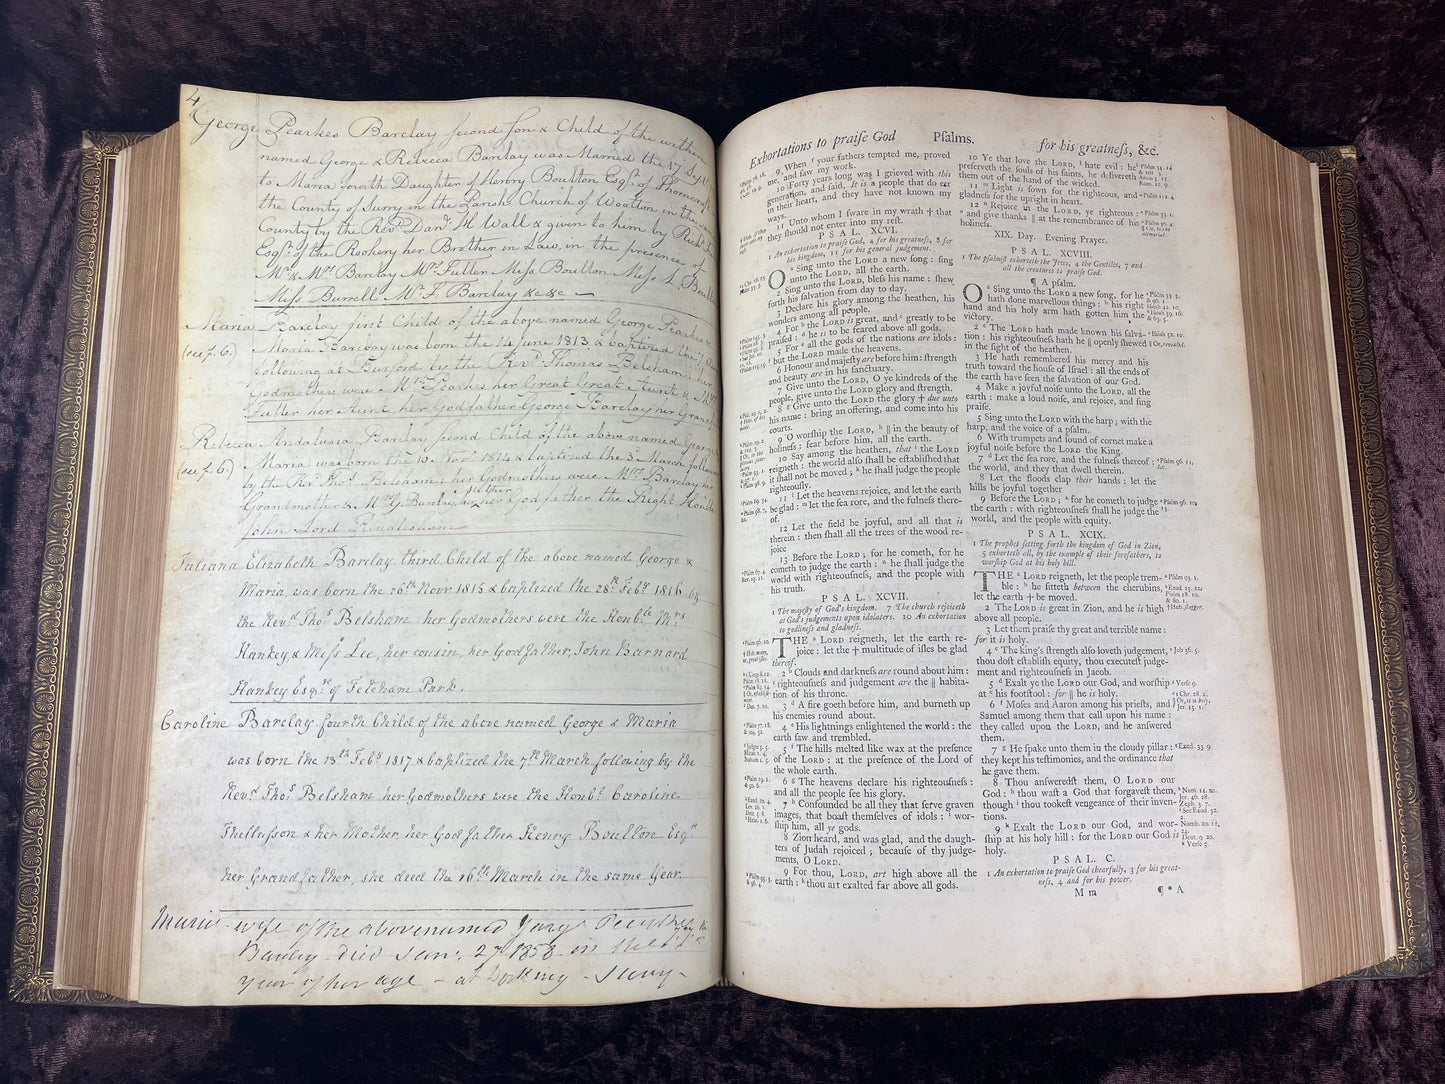 4
George Pearkes Barclay Second Son & Child of the within
named George & Rebecca Barclay was Married the 17
to Maria fourth Daughter of Henry Boulton Esqr. of Thorncroft
the County of Surry in the Parish Church of Wootton in the same
County by the Revd. Danl. Wall & given to him by Richd.
Esqr. of the Rookery her Brother in Law, in the presence of
Mr. & Mrs. Barclay Mrs. Fuller Miss Boulton Miss L Boulton
Miss Burrell Mr. F. Barclay &c &c —
Maria Barclay first Child of the above named George Pearkes &
(see f. 6.) Maria Barclay was born the 14 June 1813 & baptized the
following at Burford by the Revd. Thomas Belsham: her
Godmothers were Mrs. Pearkes her Great Great Aunt & Mrs.
Fuller her Aunt, her Godfather George Barclay her Grandf
Rebecca Andaluna Barclay Second Child of the above named George &
(see f. 6.) Maria was born the 10 Novr. 1814 & baptized the 3d March following
by the Revd. Thos. Belsham; her Godmothers were Mrs. Barclay her
Grandmother & Mrs. G. Barclay, her Godfather the Right Honble
John Lord
Juliana Elizabeth Barclay third Child of the above named George &
Maria was born the 26th Novr 1815 & baptized the 28th Feby 1816 by
the Revd. Thos. Belsham her Godmothers were the Honble Mrs
Hankey & Miss Lee, her cousin, her Godfather, John Barnard
Hankey Esqre of Fetcham Park.
Caroline Barclay fourth Child of the above named George & Maria
was born the 13th Feby 1817 & baptized the 7th March following by the
Revd Thos Belsham her Godmothers were the Honble Caroline
Thellusson & her Mother, her Godfather Henry Boulton Esqr
her Grandfather, she died the 16th March in the same Year
Maria - wife of the above named
Barclay - died Jan: 27 1858 - in the
year of her age - at Dorking - Surry -
Exhortations to praiſe God Pſalms. for his greatneſs, &c.
9 When ᶠ your fathers tempted me, proved
me, and ſaw my work.
10 Forty years long was I grieved with this
generation, and ſaid, It is a people that do err
in their heart, and they have not known my
ways.
11 Unto whom I ſware in my wrath † that
they ſhould not enter into my reſt.
PSAL. XCVI.
1 An exhortation to praiſe God, 4 for his greatneſs, 8 for
his kingdom, 11 for his general judgement.
O Sing unto the LORD a new ſong: ſing
unto the LORD, all the earth.
2 Sing unto the LORD, bleſs his name: ſhew
forth his ſalvation from day to day.
3 Declare his glory among the heathen, his
wonders among all people.
4 For ᵇ the LORD is great, and ᶜ greatly to be
praiſed: ᵈ he is to be feared above all gods.
5 For ᵉ all the gods of the nations are idols:
ᶠ but the LORD made the heavens.
6 Honour and majeſty are before him: ſtrength
and beauty are in his ſanctuary.
7 Give unto the LORD, O ye kindreds of the
people, give unto the LORD glory and ſtrength.
8 ᵍ Give unto the LORD the glory † due unto
his name: bring an offering, and come into his
courts.
9 O worſhip the LORD, ʰ ‖ in the beauty of
holineſs: fear before him, all the earth.
10 Say among the heathen, that ⁱ the LORD
reigneth: the world alſo ſhall be eſtabliſhed that
it ſhall not be moved; ᵏ he ſhall judge the people
righteouſly.
11 ˡ Let the heavens rejoice, and let the earth
be glad: ᵐ let the ſea rore, and the fulneſs there-
of.
12 Let the field be joyful, and all that is
therein: then ſhall all the trees of the wood re-
joice
13 Before the LORD; for he cometh, for he
cometh to judge the earth: ⁿ he ſhall judge the
world with righteouſneſs, and the people with
his truth.
PSAL. XCVII.
1 The majeſty of God's kingdom. 7 The church rejoiceth
at God's judgements upon idolaters. 10 An exhortation
to godlineſs and gladneſs.
THE ᵃ LORD reigneth, let the earth re-
joice: let the † multitude of iſles be glad
thereof.
2 ᵇ Clouds and darkneſs are round about him:
ᶜ righteouſneſs and judgement are the ‖ habita-
tion of his throne.
3 ᵈ A fire goeth before him, and burneth up
his enemies round about.
4 ᵉ His lightnings enlightened the world: the
earth ſaw and trembled.
5 ᶠ The hills melted like wax at the preſence
of the LORD: at the preſence of the Lord of
the whole earth.
6 ᵍ The heavens declare his righteouſneſs:
and all the people ſee his glory.
7 ʰ Confounded be all they that ſerve graven
images, that boaſt themſelves of idols: ⁱ wor-
ſhip him, all ye gods.
8 Zion heard, and was glad, and the daugh-
ters of Judah rejoiced; becauſe of thy judge-
ments, O LORD.
9 For thou, LORD, art high above all the
earth: ᵏ thou art exalted far above all gods.
10 Ye that love the LORD, ˡ hate evil: he
preſerveth the ſouls of his ſaints, he delivereth
them out of the hand of the wicked.
11 ᵐ Light is ſown for the righteous, and
gladneſs for the upright in heart.
12 ⁿ Rejoice in the LORD, ye righteous;
ᵒ and give thanks ‖ at the remembrance of his
holineſs.
XIX. Day. Evening Prayer.
PSAL. XCVIII.
1 The pſalmiſt exhorteth the Jews, 4 the Gentiles, 7 and
all the creatures to praiſe God.
¶ A pſalm.
O Sing unto the LORD a new ſong, for he
hath done marvellous things: ᵇ his right
hand and his holy arm hath gotten him the
victory.
2 ᶜ The LORD hath made known his ſalva-
tion: his righteouſneſs hath he ‖ openly ſhewed
in the ſight of the heathen.
3 He hath remembered his mercy and his
truth toward the houſe of Iſrael: all the ends of
the earth have ſeen the ſalvation of our God.
4 Make a joyful noiſe unto the LORD, all the
earth: make a loud noiſe, and rejoice, and ſing
praiſe.
5 Sing unto the LORD with the harp; with the
harp, and the voice of a pſalm.
6 With trumpets and ſound of cornet make a
joyful noiſe before the LORD the King.
7 ᵈ Let the ſea rore, and the fulneſs thereof;
the world, and they that dwell therein.
8 Let the floods clap their hands: let the
hills be joyful together
9 Before the LORD; ᵉ for he cometh to judge
the earth: with righteouſneſs ſhall he judge the
world, and the people with equity.
PSAL. XCIX.
1 The prophet ſetting forth the kingdom of God in Zion,
5 exhorteth all, by the example of their forefathers, to
worſhip God at his holy hill.
THE ᵃ LORD reigneth, let the people trem-
ble: ᵇ he ſitteth between the cherubins,
let the earth † be moved.
2 The LORD is great in Zion, and he is high
above all people.
3 Let them praiſe thy great and terrible name:
for it is holy.
4 ᶜ The king's ſtrength alſo loveth judgement,
thou doſt eſtabliſh equity, thou executeſt judge-
ment and righteouſneſs in Jacob.
5 ᵈ Exalt ye the LORD our God, and worſhip
at ᵉ his footſtool: for ‖ he is holy.
6 ᶠ Moſes and Aaron among his prieſts, and
Samuel among them that call upon his name:
they called upon the LORD, and he anſwered
them.
7 ᵍ He ſpake unto them in the cloudy pillar:
they kept his teſtimonies, and the ordinance that
he gave them.
8 Thou anſweredſt them, O LORD our
God: ʰ thou waſt a God that forgaveſt them,
though ⁱ thou tookeſt vengeance of their inven-
tions.
9 ᵏ Exalt the LORD our God, and wor-
ſhip at his holy hill: for the LORD our God is
holy.
PSAL. C.
1 An exhortation to praiſe God chearfully, 3 for his great-
neſs, 4 and for his power.
M m ¶ * A